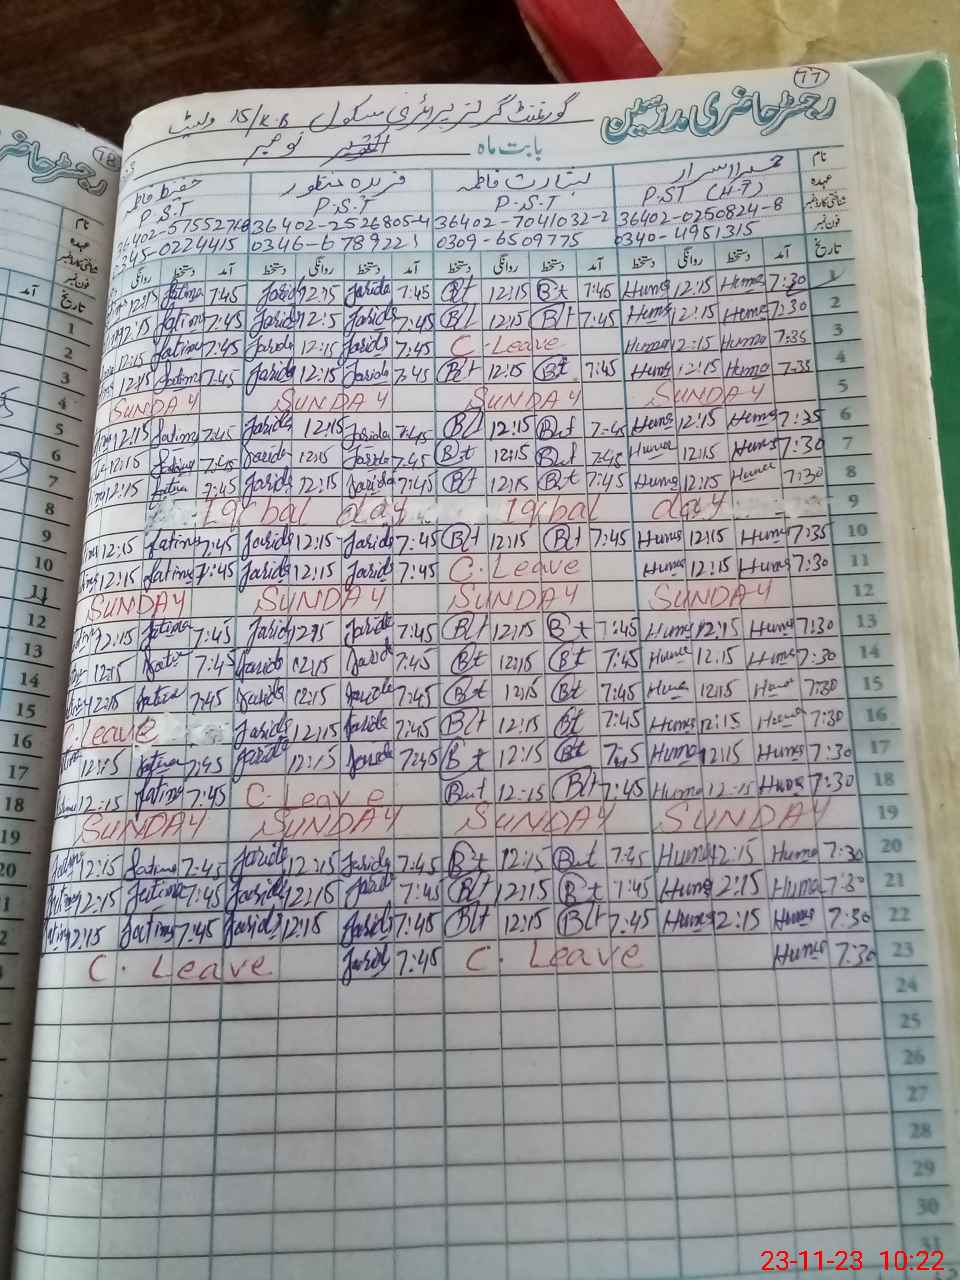 77
رجسٹر حاضری مدرسین
گورنمنٹ گرلز پرائمری سکول 15/K.B
بابت ماہ نومبر
نام حمیرا اسرار بشارت فاطمہ فریدہ منظور حفیظ فاطمہ
عہدہ P.ST P.S.T P.S.T P.S.T
شناختی کارڈ نمبر 36402-0250824-8 36402-7041032-2 36402-2526805-4
فون نمبر 0340-4951315 0309-6509775 0346-6789221 345-0224415
تاریخ آمد دستخط روانگی دستخط آمد دستخط روانگی دستخط آمد دستخط روانگی دستخط آمد دستخط روانگی
12:15 fatima 7:45 farida 12:15 farida 7:45 Bt 12:15 Bt 7:45 Huma 12:15 Huma 7:30 1
12:15 fatima 7:45 farida 12:5 farida 7:45 Blt 12:15 Blt 7:45 Huma 12:15 Huma 7:30 2
12:15 fatima 7:45 farida 12:15 farida 7:45 C.Leave Huma 12:15 Huma 7:35 3
12:15 fatima 7:45 farida 12:15 farida 7:45 Blt 12:15 Bt 7:45 Huma 12:15 Huma 7:35 4
SUNDAY SUNDAY SUNDAY SUNDAY 5
12:15 fatima 7:45 farida 12:15 farida 7:45 Blt 12:15 But 7:45 Huma 12:15 Huma 7:35 6
12:15 fatima 7:45 farida 12:15 farida 7:45 Bt 12:15 But 7:45 Huma 12:15 Huma 7:30 7
12:15 fatima 7:45 farida 12:15 farida 7:45 Blt 12:15 Blt 7:45 Huma 12:15 Huma 7:30 8
Iqbal day Iqbal day 9
12:15 fatima 7:45 farida 12:15 farida 7:45 Blt 12:15 Blt 7:45 Huma 12:15 Huma 7:35 10
12:15 fatima 7:45 farida 12:15 farida 7:45 C.Leave Huma 12:15 Huma 7:30 11
SUNDAY SUNDAY SUNDAY SUNDAY 12
12:15 fatima 7:45 farida 12:15 farida 7:45 Blt 12:15 Bt 7:45 Huma 12:15 Huma 7:30 13
12:15 fatima 7:45 farida 12:15 farida 7:45 Bt 12:15 Bt 7:45 Huma 12:15 Huma 7:30 14
12:15 fatima 7:45 farida 12:15 farida 7:45 Bt 12:15 Bt 7:45 Huma 12:15 Huma 7:30 15
C.Leave farida 12:15 farida 7:45 Blt 12:15 Bt 7:45 Huma 12:15 Huma 7:30 16
12:15 fatima 7:45 farida 12:15 farida 7:45 Bt 12:15 Bt 7:45 Huma 12:15 Huma 7:30 17
12:15 fatima 7:45 C.Leave But 12:15 Blt 7:45 Huma 12:15 Huma 7:30 18
SUNDAY SUNDAY SUNDAY SUNDAY 19
12:15 fatima 7:45 farida 12:15 farida 7:45 Bt 12:15 But 7:45 Huma 12:15 Huma 7:30 20
12:15 fatima 7:45 farida 12:15 farida 7:45 Blt 12:15 Bt 7:45 Huma 12:15 Huma 7:30 21
12:15 fatima 7:45 farida 12:15 farida 7:45 Blt 12:15 Blt 7:45 Huma 12:15 Huma 7:30 22
C. Leave farida 7:45 C. Leave Huma 7:30 23
24
25
26
27
28
29
30
31
78
رجسٹر حاضری
نام
عہدہ
شناختی کارڈ نمبر
فون نمبر
تاریخ
آمد
1
2
3
4
5
6
7
8
9
10
11
12
13
14
15
16
17
18
19
20
23-11-23 10:22